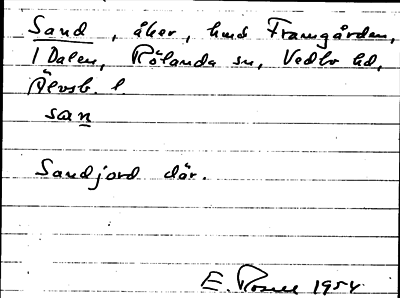 Sand, åker, hmd Framgården,
1 Dalen, Rölanda sn, Vedbo hd,
Älvsb. l.
san
Sandjord där.
E. 1954